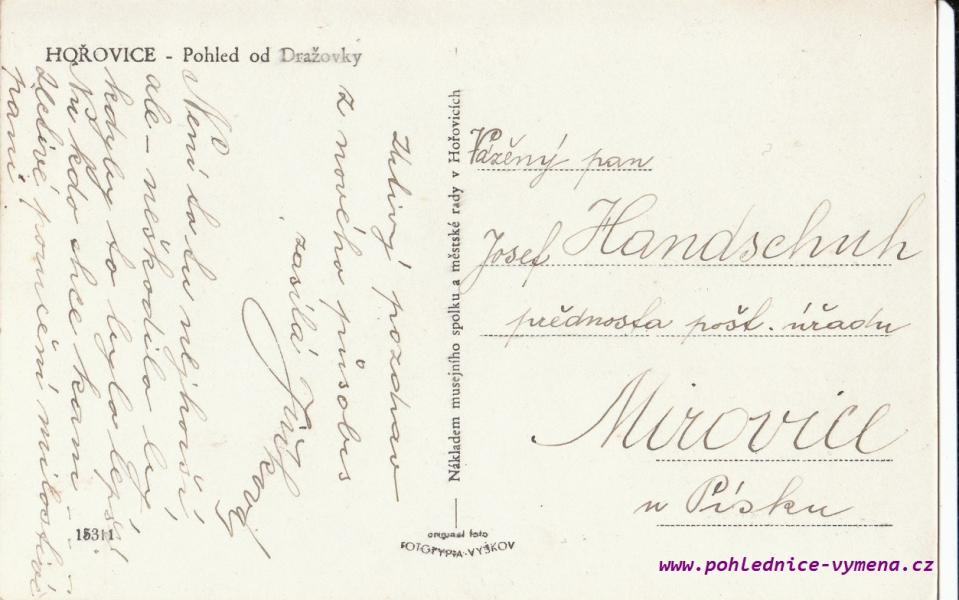 HOŘOVICE - Pohled od Dražovky
Uctivý pozdrav
z nového působiš
zasílá
Není to tu nejhorší
ale - neškodilo by,
kdyby to bylo lepší
Nu kdo chce kam -
Uctivé poručení milostivé
paní
15311
Nákladem musejního spolku a městské rady v Hořovicích
original foto
FOTOTYPIA-VYŠKOV
Vážený pan
Josef Handschuh
přednosta pošt. úřadu
Mirovice
u Písku
www.pohlednice-vymena.cz